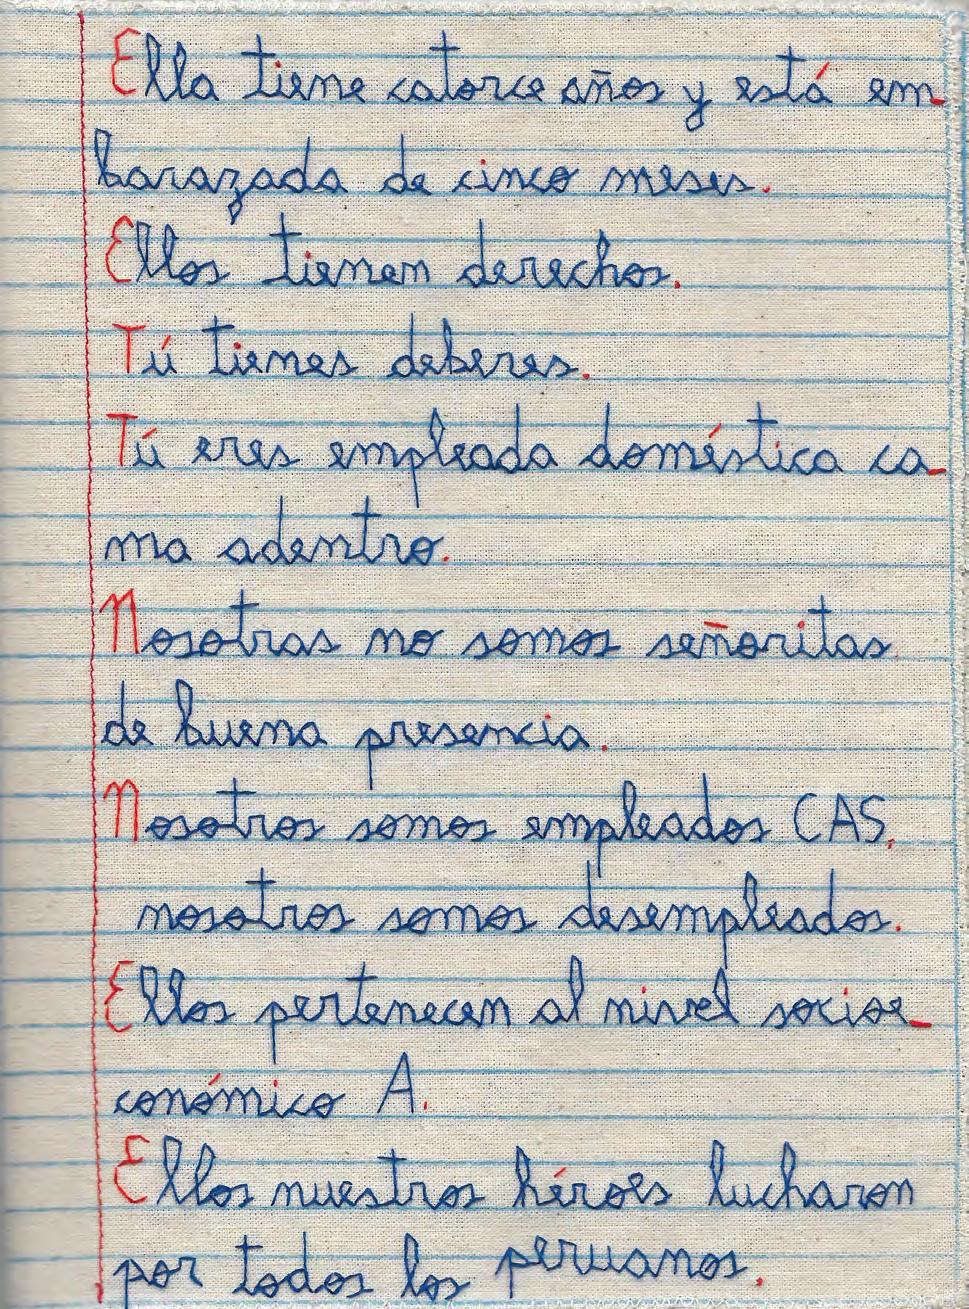 Ella tiene catorce años y está em-
barazada de cinco meses.
Ellos tienen derechos.
Tú tienes deberes.
Tú eres empleada doméstica ca-
ma adentro.
Nosotras no somos señoritas
de buena presencia.
Nosotros somos empleados CAS,
nosotros somos desempleados.
Ellos pertenecen al nivel socioe-
conómico A.
Ellos nuestros héroes lucharon
por todos los peruanos.